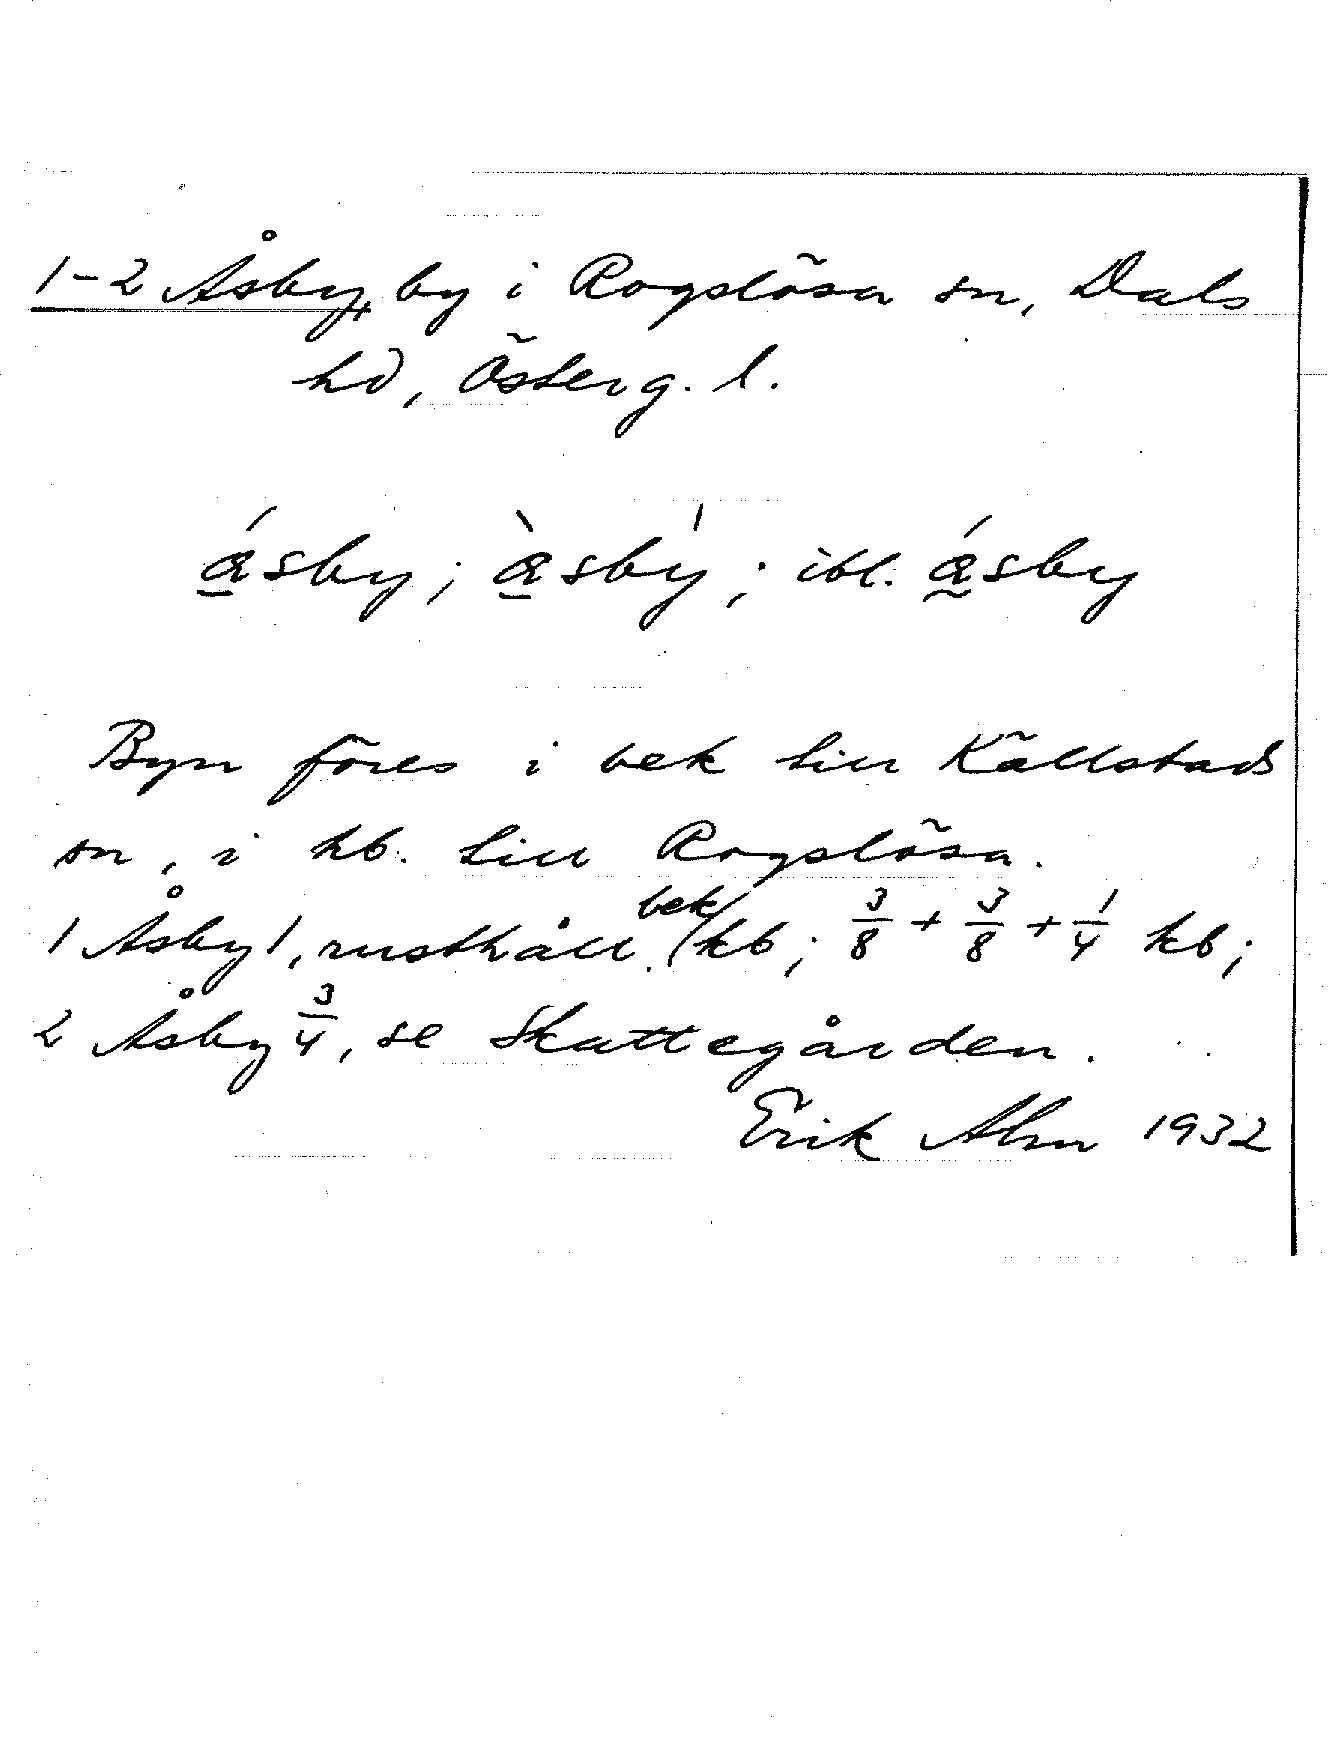 1-2 Åsby, by i Rogslösa sn, Dals
hd, Österg. l.
á̲sby; à̲sby̍; ibl. á̰sby
Byn föres i bek till Källstads
sn, i kb. till Rogslösa.
1 Åsby 1, rusthåll bek/kb; 3/8 + 3/8 + 1/4 kb;
2 Åsby 3/4, se Skattegården.
Erik Alm 1932